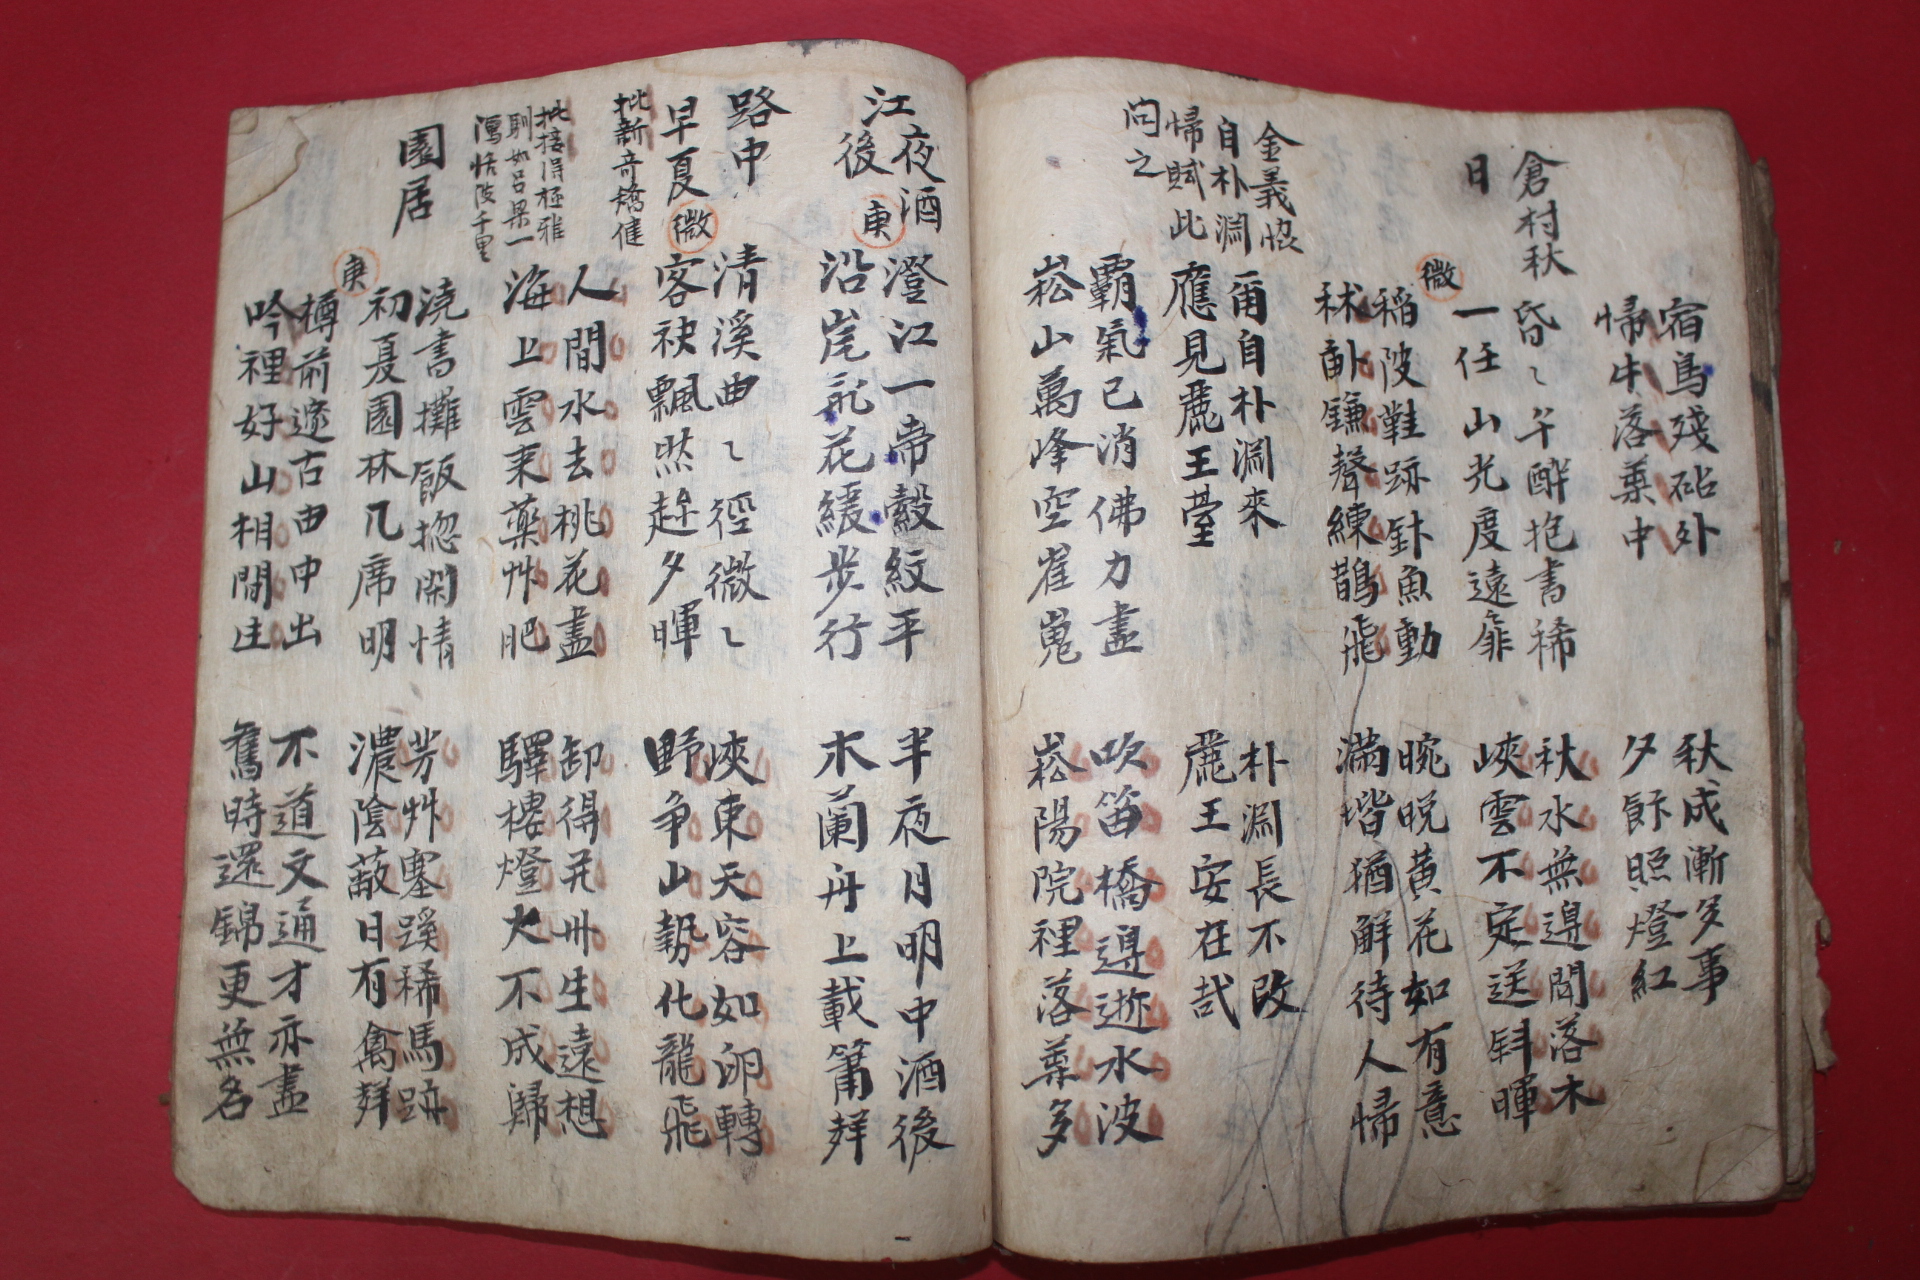 宿鳥殘砧外
帰牛落葉中
秋成漸多事
夕餘照燈紅
倉村秋
日
昏〻午醉抱書稀
一任山光度遠扉
秋水無邊聞落木
峽雲不定送斜暉
微
稻陂鞋跡針魚動
秫畝鎌聲練鵲飛
晼晩黃花如有意
滿堦猶解待人帰
金義恨
自朴淵
帰賦此
问之
甭自朴淵來
應見麗王臺
朴淵長不改
麗王安在哉
霸氣已消佛力盡
崧山萬峰空崔嵬
吹笛橋邊逝水波
崧陽院裡落葉多
江夜酒
後
庚
澄江一帝縠紋平
沿岸
花緩步行
半夜月明中酒後
木蘭舟上載簫
路中
早夏
微
清溪曲〻徑微〻
客袂飄然趁夕暉
峽東天容如卵轉
野争山勢化龍飛
批新奇矯健
人間水去桃花盡
海上雲来藥艸肥
卸得丹卅生遠想
驛樓燈火不成歸
批接得極雅
馴如呂梁一
瀉恬波千里
園居
庚
澆書攤飯揔閑情
初夏園林几席明
芳艸塞蹊稀馬跡
濃陰蔽日有禽
樽前遼古由中出
吟裡好山相間生
不道文通才亦盡
舊時還錦更無名